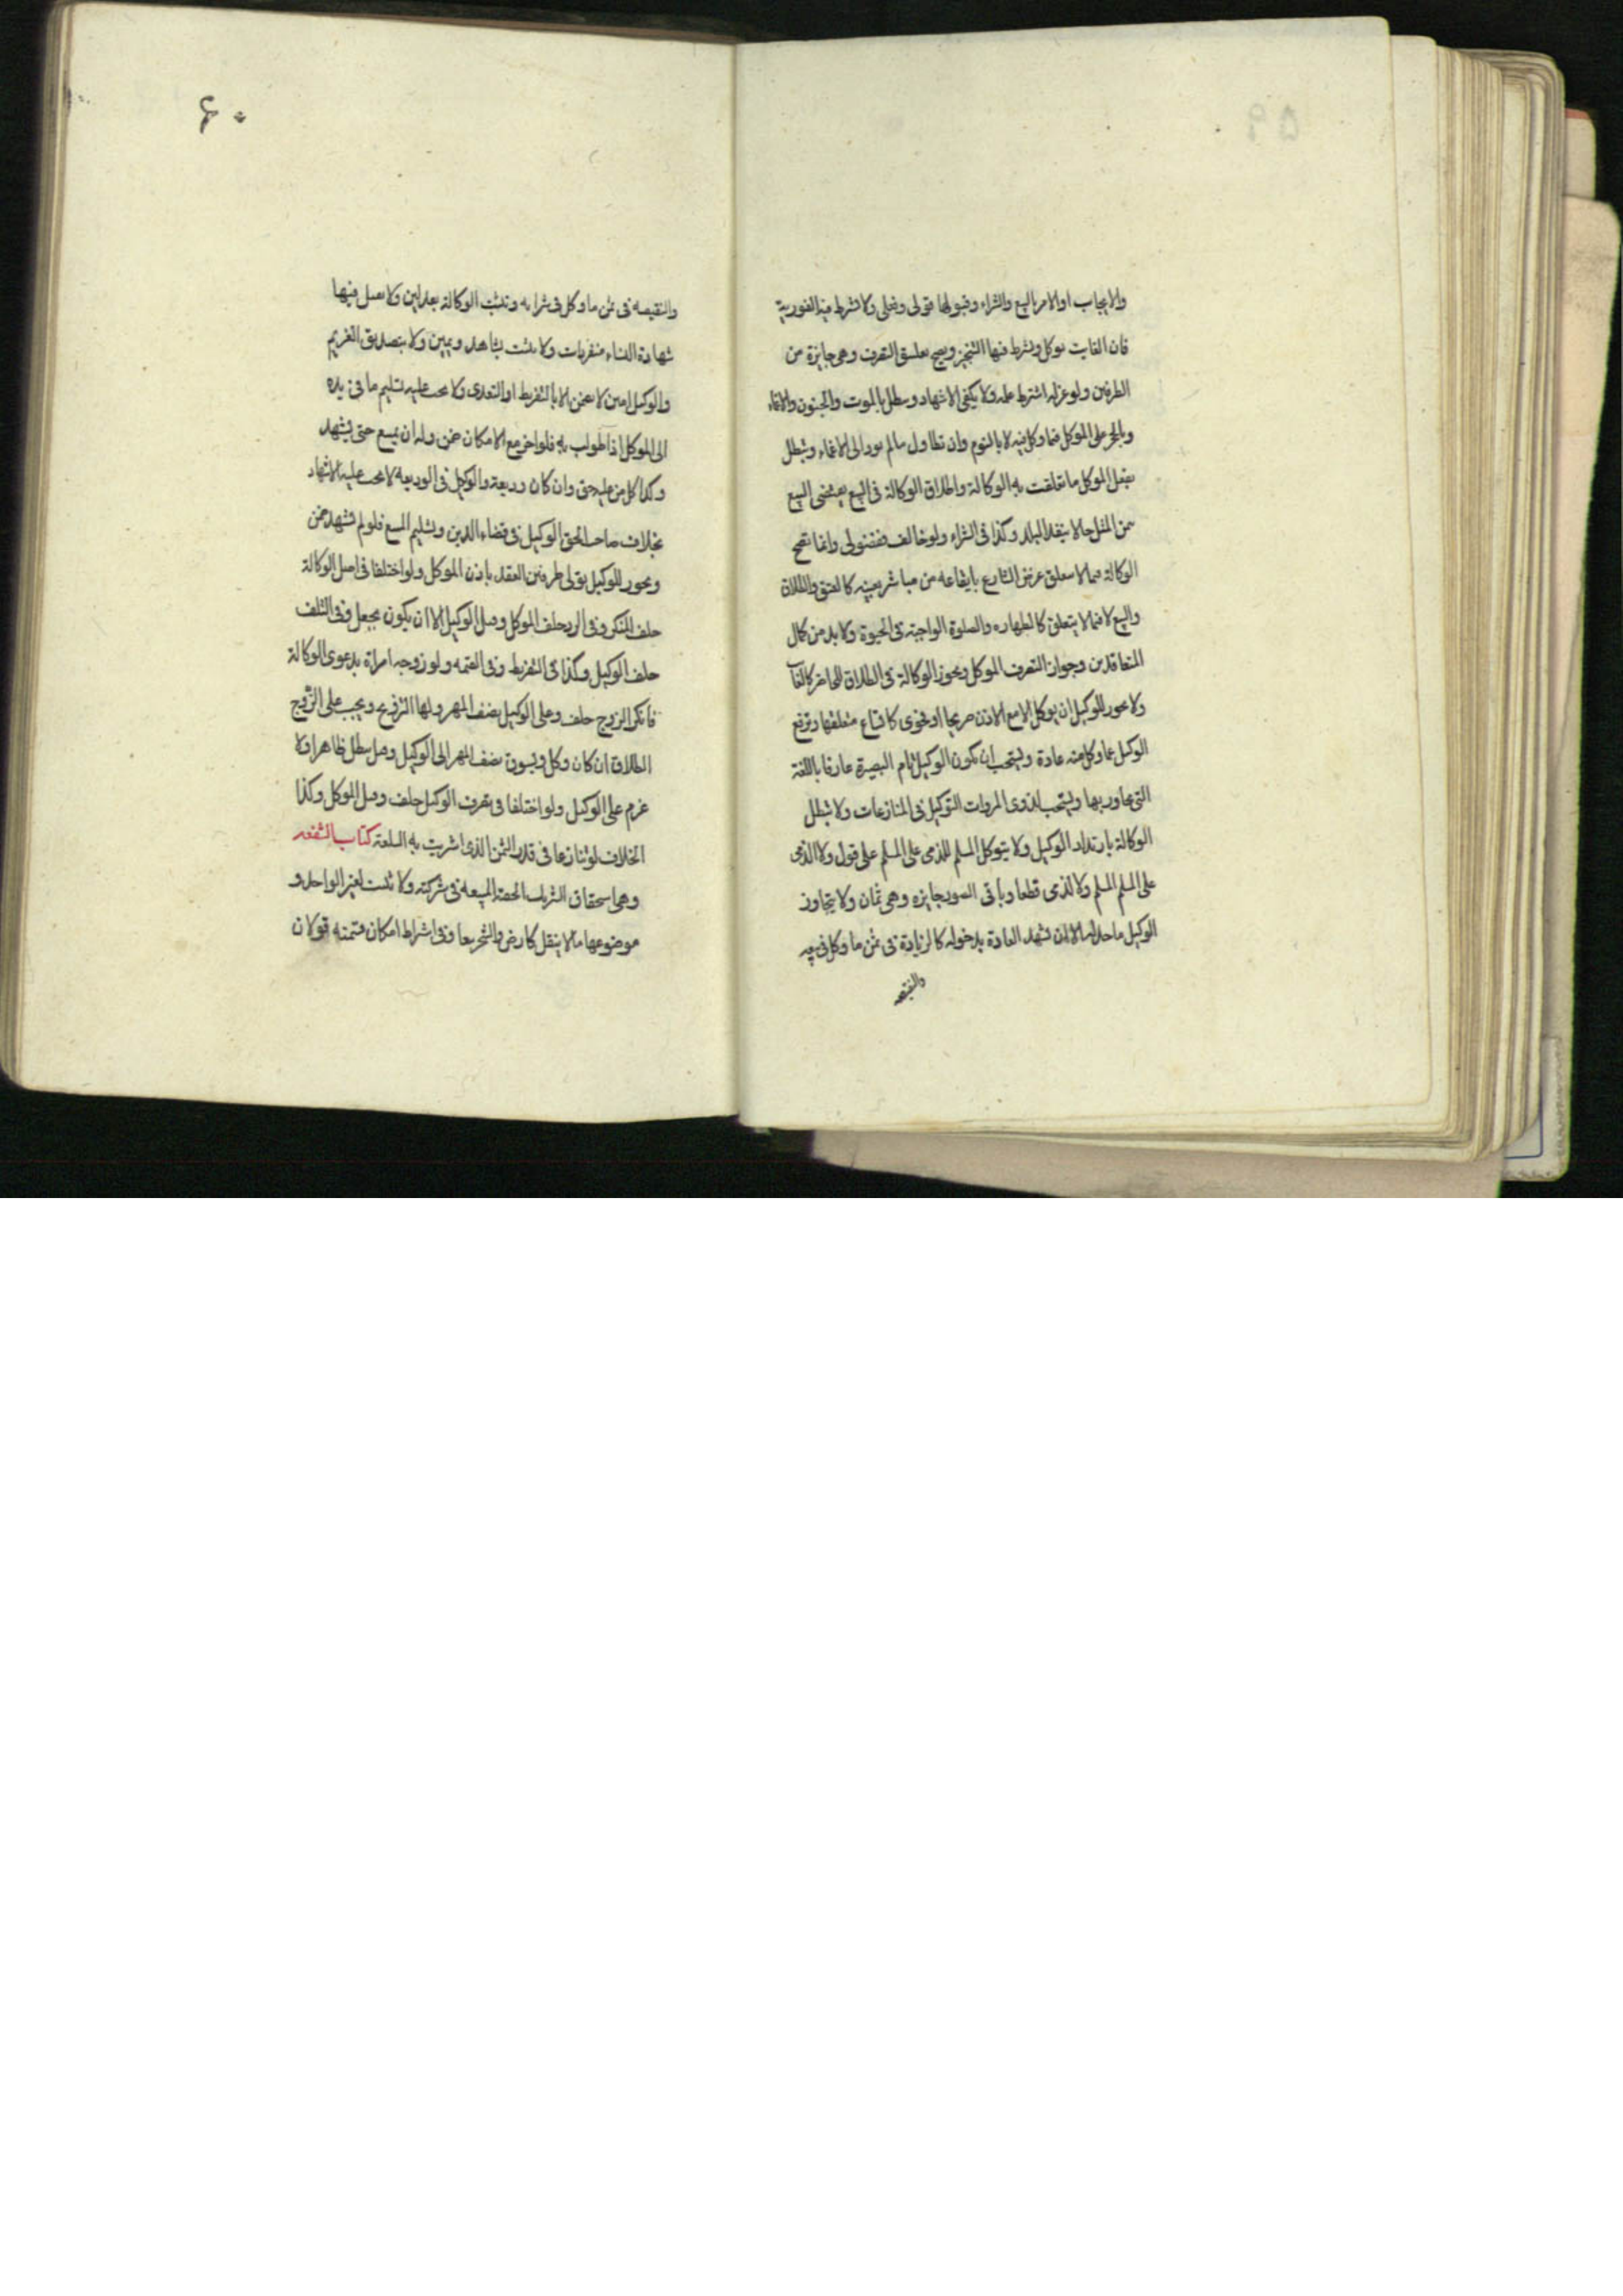 والايجاب اوالامر بالبيع والشراء وقبولها قولى وفعلى ولا يشترط فيه الفورية
فان الغايب يوكل ويشترط فيها التنجيز ويصح تعليق التصرف وهى جايزة من
الطرفين ولو عزله اشترط علمه ولا يكفى الاشهاد وتبطل بالموت والجنون والاغماء
وبالحجر على الموكل فيما وكل فيه لا بالنوم وان تطاول مالم يود الى الاغماء وتبطل
بفعل الموكل ما تعلقت به الوكالة واطلاق الوكالة فى البيع يقتضى البيع
بثمن المثل حالا بنقد البلد وكذا فى الشراء ولو خالف ففضولى وانما تصح
الوكالة فيما لا يتعلق غرض الشارع بايقاعه من مباشر بعينه كالعتق والطلاق
والبيع لا فيما يتعلق كالطهاره والصلوة الواجبة فى الحيوة ولا بد من كمال
المتعاقدين وجواز التصرف الموكل ويجوز الوكالة فى الطلاق للحاضر كالغايب
ولا يجوز للوكيل ان يوكل الا مع الاذن صريحا او فحوى كاتساع متعلقها وترفع
الوكيل عما وكل فيه عادة ويستحب ان يكون الوكيل تام البصيرة عارفا باللغة
التى يحاور بها ويستحب لذوى المروات التوكيل فى المنازعات ولا تبطل
الوكالة بارتداد الوكيل ولا يتوكل المسلم للذمى على المسلم على قول ولا الذمى
على المسلم للمسلم ولا لذمى قطعا وباقى الصور جايزه وهى ثمان ولا يتجاوز
الوكيل ما حد له الا ان تشهد العادة بدخوله كالزيادة فى ثمن ما وكل فى بيعه
والنقيصه
۶۰
والنقيصه فى ثمن ما وكل فى شرايه وتثبت الوكالة بعدلين ولا تقبل فيها
شهادة النساء منفردات ولا تثبت بشاهد ويمين ولا بتصديق الغريم
والوكيل امين لا يضمن الا بالتفريط او التعدى ولا يجب عليه تسليم ما فى يده
الى الموكل الا اذا طولب به فلو اخر مع الامكان ضمن وله ان يمتنع حتى يشهد
وكذا كل من عليه حق وان كان وديعة والوكيل فى الوديعه لا يجب عليه الاشهاد
بخلاف الوكيل فى قضاء الدين وتسليم المبيع فلو لم يشهد ضمن
ويجوز للوكيل تولى طرفين العقد باذن الموكل ولو اختلفا فى اصل الوكالة
حلف المنكر وفى الرد حلف الموكل وقيل الوكيل الا ان يكون بجعل وفى التلف
حلف الوكيل وكذا فى التفريط وفى القيمه ولو زوجه امراة بدعوى الوكالة
فانكر الزوج حلف وعلى الوكيل نصف المهر ولها التزويج ويجب على الزوج
الطلاق ان كان وكل ويسوق نصف المهر الى الوكيل وقيل يبطل ظاهرا ولا
غرم على الوكيل ولو اختلفا فى تصرف الوكيل حلف وقيل الموكل وكذا
الخلاف لو تنازعا فى قدر الثمن الذى اشريت به السلعة كتاب الشفعه
وهى استحقاق الشريك الحصة المبيعه فى شركته ولا تثبت لغير الواحد و
موضوعها مالا ينقل كارض والشجر تبعا وفى اشراط امكان قسمته قولان